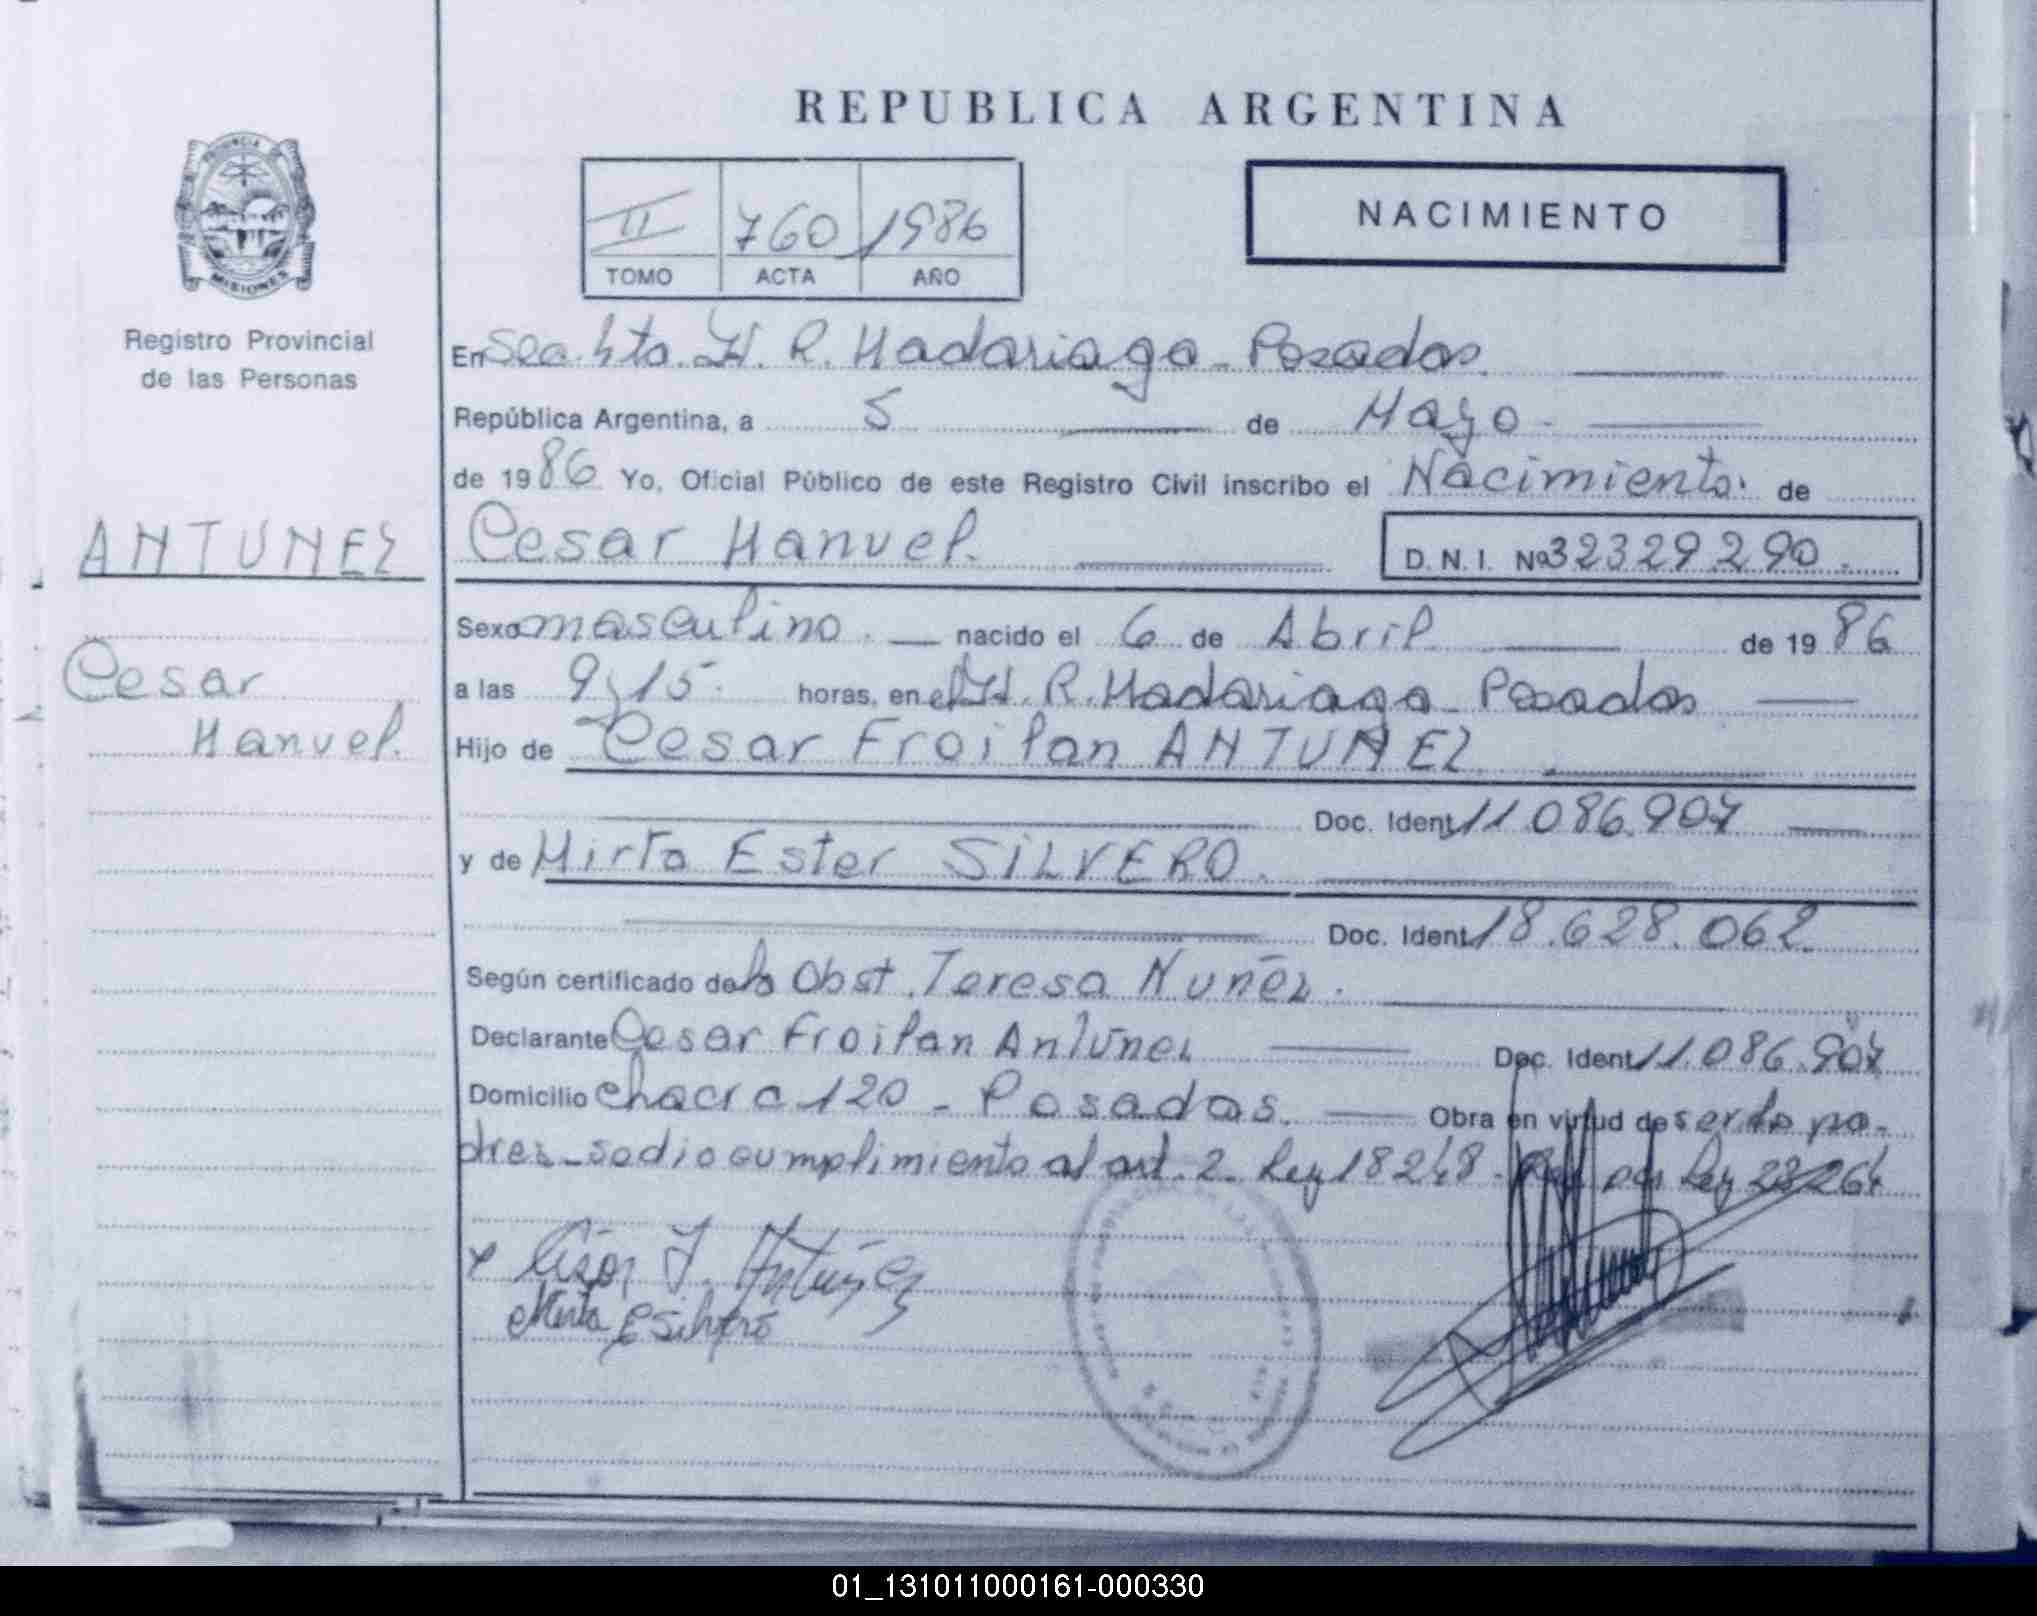 REPUBLICA ARGENTINA
PROVINCIA DE
MISIONES
Registro Provincial
de las Personas
II 760 1986
TOMO ACTA AÑO
NACIMIENTO
En Sec. hta. H. R. Madariaga - Posadas.
República Argentina, a 5 de Mayo
de 1986 Yo, Oficial Público de este Registro Civil inscribo el Nacimiento. de
Cesar Manuel. D. N. I. Nº 32329290.
ANTUNEZ
Cesar
Manuel.
Sexo masculino. nacido el 6 de Abril de 1986
a las 9,15. horas, en el H. R. Madariaga - Posadas
Hijo de Cesar Froilan ANTUNEZ
Doc. Ident. 11.086.907
y de Mirta Ester SILVERO.
Doc. Ident. 18.628.062.
Según certificado de la Obst. Teresa Nuñez.
Declarante Cesar Froilan Antunez Doc. Ident. 11.086.907
Domicilio Chacra 120 - Posadas. Obra en virtud de ser los pa-
dres - se dio cumplimiento al art. 2 - Ley 18248 - por Ley 23264
Cesar F. Antúnez
Mirta E Silvero
01_131011000161-000330